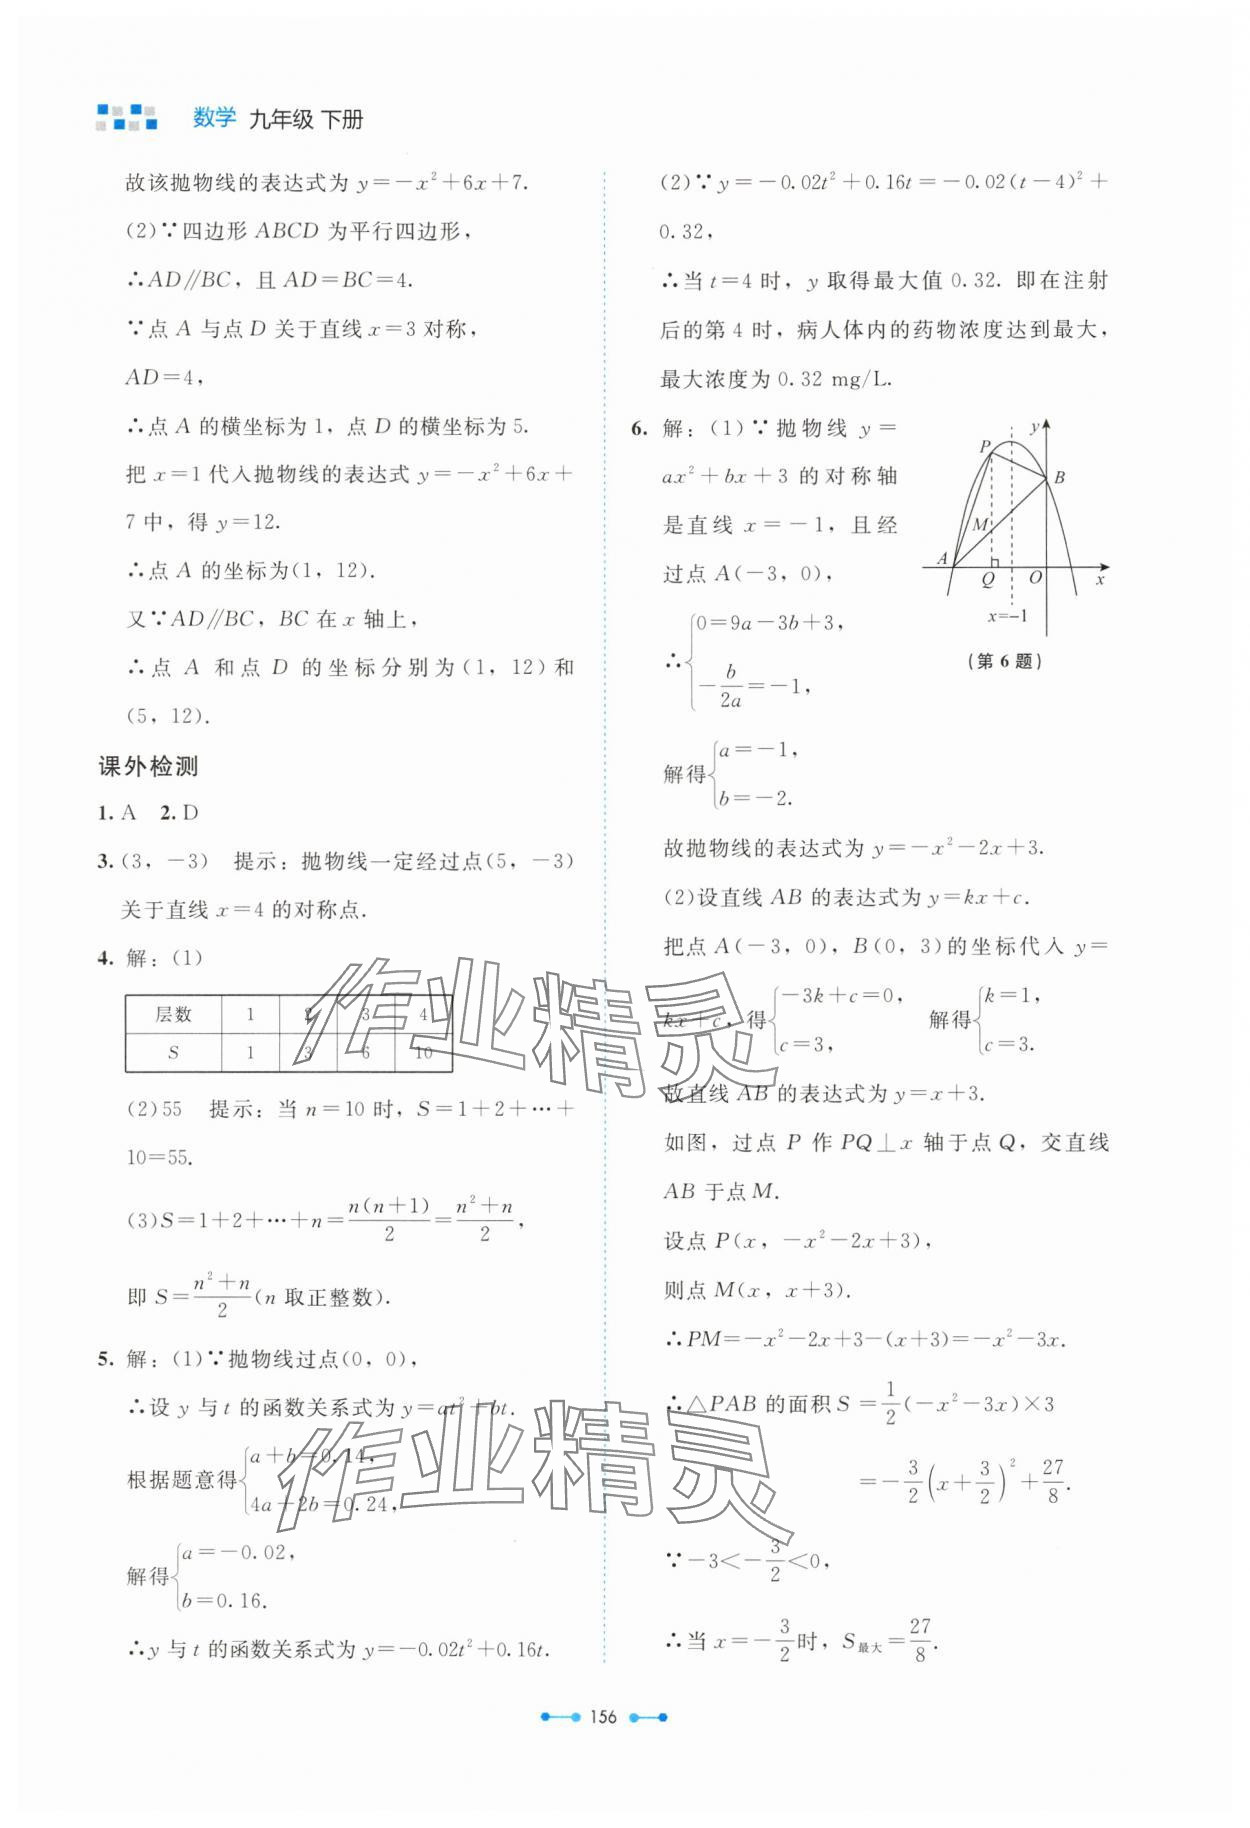 数学 九年级 下册
故该抛物线的表达式为 y=-x²+6x+7.
(2)∵四边形 ABCD 为平行四边形，
∴AD∥BC，且 AD=BC=4.
∵点 A 与点 D 关于直线 x=3 对称，
AD=4，
∴点 A 的横坐标为 1，点 D 的横坐标为 5.
把 x=1 代入抛物线的表达式 y=-x²+6x+
7 中，得 y=12.
∴点 A 的坐标为(1，12).
又∵AD∥BC，BC 在 x 轴上，
∴点 A 和点 D 的坐标分别为(1，12)和
(5，12).
课外检测
1. A 2. D
3. (3，-3) 提示：抛物线一定经过点(5，-3)
关于直线 x=4 的对称点.
4. 解：(1)
层数 1 2 3 4
S 1 3 6 10
(2)55 提示：当 n=10 时，S=1+2+…+
10=55.
(3)S=1+2+…+n=n(n+1)/2=(n²+n)/2，
即 S=(n²+n)/2(n 取正整数).
5. 解：(1)∵抛物线过点(0，0)，
∴设 y 与 t 的函数关系式为 y=at²+bt.
根据题意得{a+b=0.14，
4a+2b=0.24，
解得{a=-0.02，
b=0.16.
∴y 与 t 的函数关系式为 y=-0.02t²+0.16t.
(2)∵y=-0.02t²+0.16t=-0.02(t-4)²+
0.32，
∴当 t=4 时，y 取得最大值 0.32. 即在注射
后的第 4 时，病人体内的药物浓度达到最大，
最大浓度为 0.32 mg/L.
6. 解：(1)∵抛物线 y=
ax²+bx+3 的对称轴
是直线 x=-1，且经
过点 A(-3，0)，
∴{0=9a-3b+3，
-b/2a=-1，
y
P
B
M
A
Q
O
x
x=-1
(第 6 题)
解得{a=-1，
b=-2.
故抛物线的表达式为 y=-x²-2x+3.
(2)设直线 AB 的表达式为 y=kx+c.
把点 A(-3，0)，B(0，3)的坐标代入 y=
kx+c，得{-3k+c=0，
c=3，
解得{k=1，
c=3.
故直线 AB 的表达式为 y=x+3.
如图，过点 P 作 PQ⊥x 轴于点 Q，交直线
AB 于点 M.
设点 P(x，-x²-2x+3)，
则点 M(x，x+3).
∴PM=-x²-2x+3-(x+3)=-x²-3x.
∴△PAB 的面积 S=1/2(-x²-3x)×3
=-3/2(x+3/2)²+27/8.
∵-3<-3/2<0，
∴当 x=-3/2时，S最大=27/8.
156
作业精灵
作业精灵